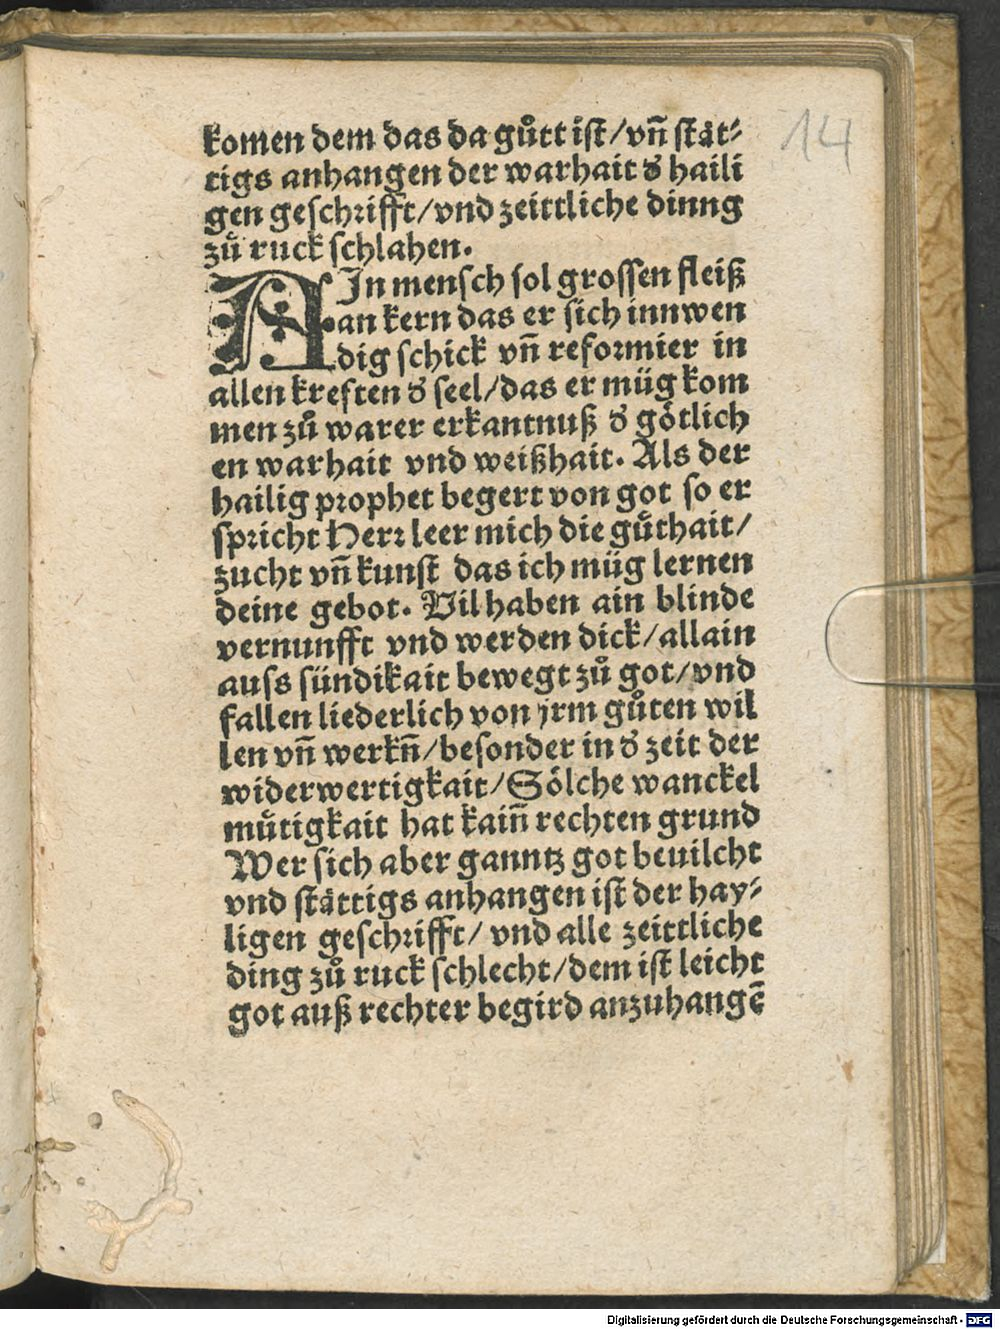 komen dem das da gůtt ist/vñ stät⸗
tigs anhangen der warhait ꝺ haili
gen geschrifft/vnd zeittliche dinng
zů ruck schlahen.
AIn mensch sol grossen fleiß
an kern das er sich innwen
dig schick vñ reformier in
allen kreften ꝺ seel/das er müg kom
men zů warer erkantnuß ꝺ götlich
en warhait vnd weißhait. Als der
hailig prophet begert von got so er
spricht Herr leer mich die gůthait/
zucht vñ kunst das ich müg lernen
deine gebot. Vil haben ain blinde
vernunfft vnd werden dick/allain
auss sündikait bewegt zů got/vnd
fallen liederlich von jrm gůten wil
len vñ werkñ/besonder in ꝺ zeit der
widerwertigkait/Sölche wanckel
můtigkait hat kaiñ rechten grund
Wer sich aber ganntz got beuilcht
vnd stättigs anhangen ist der hay⸗
ligen geschrifft/vnd alle zeittliche
ding zů ruck schlecht/dem ist leicht
got auß rechter begird anzuhangē
14
Digitalisierung gefördert durch die Deutsche Forschungsgemeinschaft - DFG